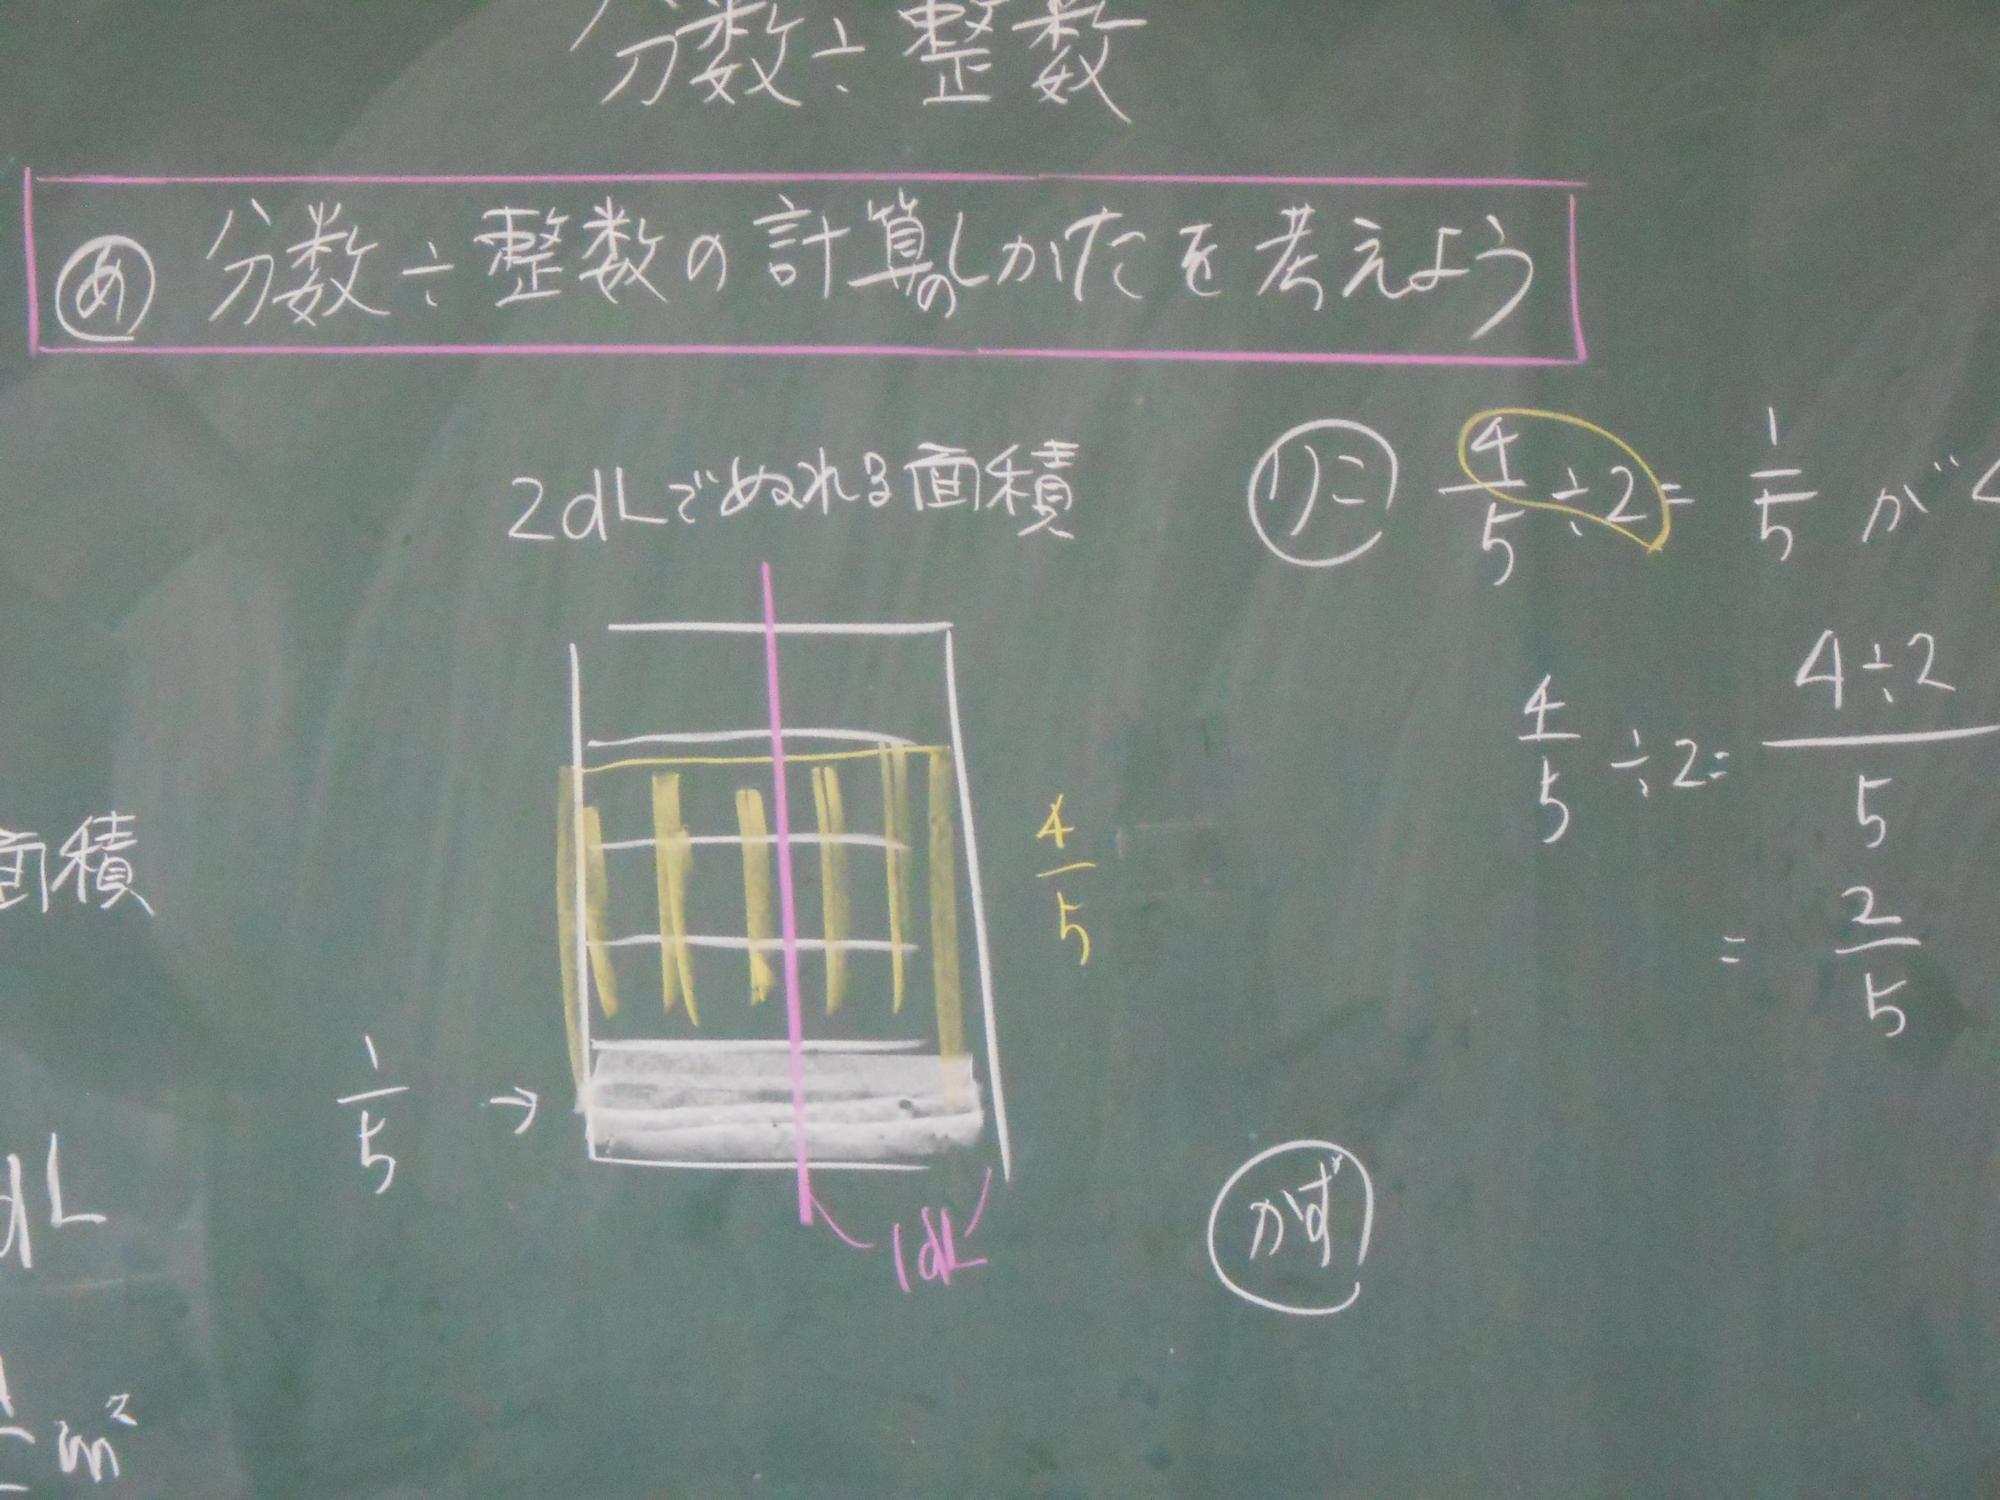 分数÷整数
め 分数÷整数の計算のしかたを考えよう
2dLでぬれる面積
4/5
1/5 →
1dL
りこ 4/5 ÷2= 1/5 が
4/5 ÷2= 4÷2/5
= 2/5
かず
面積
dL
m²